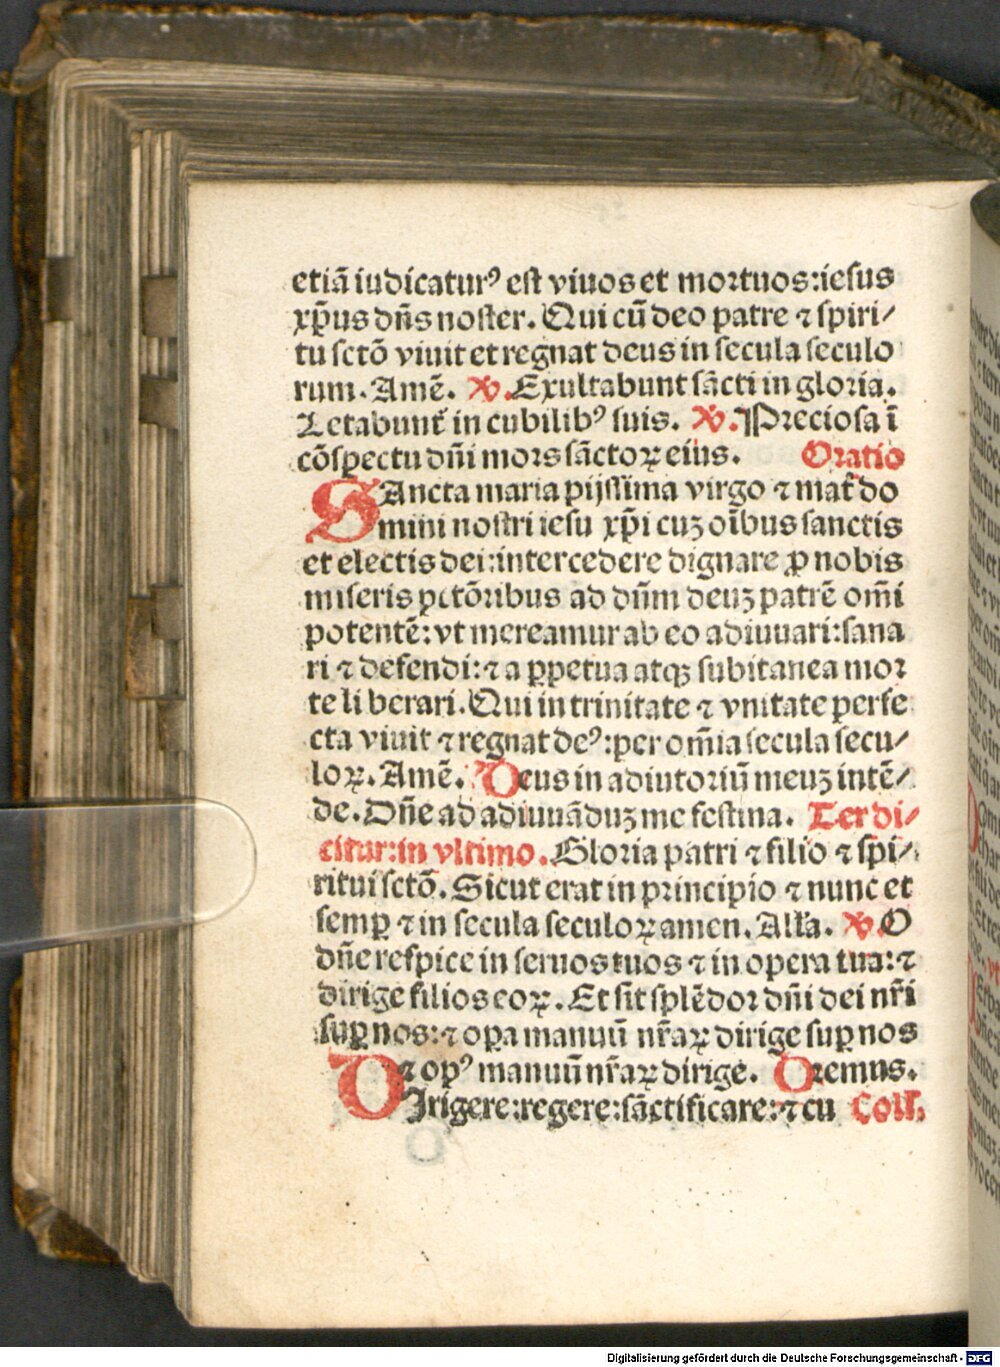 etiā iudicaturꝰ est viuos et mortuos:iesus
xp̄us dn̄s noster. Qui cū deo patre ⁊ spiri/
tu sctō viuit et regnat deus in secula seculo
rum. Amē. ℣. Exultabunt sācti in gloria.
Letabunt̄ in cubilibꝰ suis. ℣. Preciosa ī
cōspectu dn̄i mors sāctoꝝ eius. Oratio
SAncta maria pijssima virgo ⁊ mat̄ do
mini nostri iesu xp̄i cuꝫ oībus sanctis
et electis dei:intercedere dignare ꝓ nobis
miseris pctōribus ad dn̄m deuꝫ patrē om̄i
potentē: vt mereamur ab eo adiuuari:sana
ri ⁊ defendi: ⁊ a ꝑpetua atqꝫ subitanea mor
te li berari. Qui in trinitate ⁊ vnitate perfe
cta viuit ⁊ regnat deꝰ:per om̄ia secula secu/
loꝝ. Amē. Deus in adiutoriū meuꝫ intē/
de. Dn̄e ad adiuuāduꝫ me festina. Ter di/
citur:in vltimo. Gloria patri ⁊ filio ⁊ sp̄i/
ritui sctō. Sicut erat in principio ⁊ nunc et
semꝑ ⁊ in secula seculoꝝ amen. All'a. ℣. O
dn̄e respice in seruos tuos ⁊ in opera tua: ⁊
dirige filios eoꝝ. Et sit splēdor dn̄i dei nr̄i
suꝑ nos: ⁊ oꝑa manuū nr̄aꝝ dirige suꝑ nos
⁊ opꝰ manuū nr̄aꝝ dirige. Oremus.
DIrigere:regere:sāctificare: ⁊ cu Coll'.
Digitalisierung gefördert durch die Deutsche Forschungsgemeinschaft - DFG